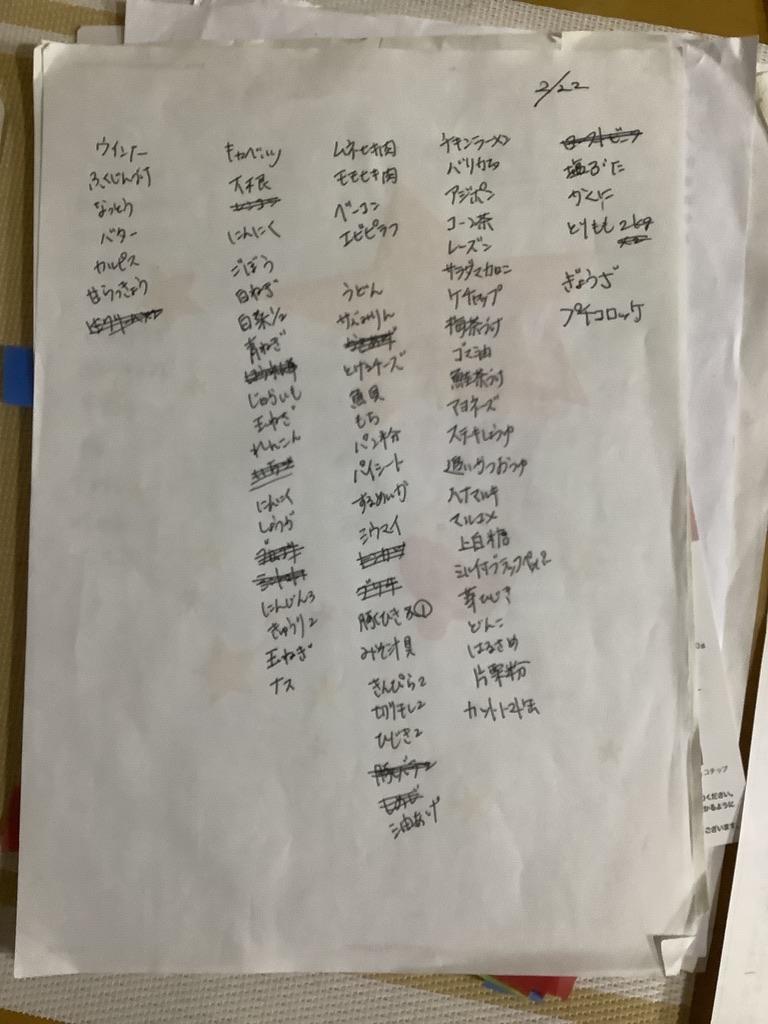 2/22
ウインナー
ふくじん付
なっとう
バター
カルピス
甘らっきょう
キャベツ
大根
にんにく
ごぼう
白ねぎ
白菜1/2
青ねぎ
じゃらいも
玉ねぎ
れんこん
にんにく
しょうが
にんじん3
きゅうり2
玉ねぎ
ナス
ムネセキ肉
モモセキ肉
ベーコン
エビピラフ
うどん
とけるチーズ
魚貝
もち
パン粉
パイシート
するめいか
シウマイ
豚ひき①
みそ汁具
きんぴら2
切りモレ2
ひじき2
三油あげ
チキンラーメン
バリカタ
アジポン
コーン茶
レーズン
サラダマカロニ
ケチャップ
梅茶づけ
ゴマ油
鮭茶づけ
マヨネーズ
ステーキしょうゆ
追いがつおつゆ
ハナマルキ
マルコメ
上白糖
芽ひじき
どんこ
はるさめ
片栗粉
カットトマト缶
ローストビーフ
塩ぶた
かくに
とりもも 2kg
ぎょうざ
プチコロッケ
コチップ
ください。
かるように
ございます